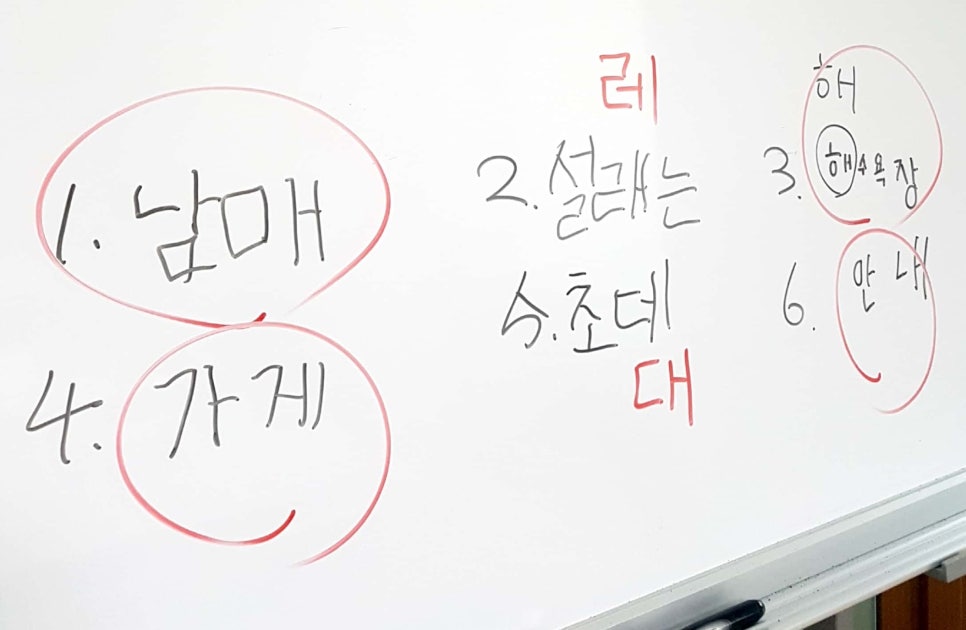 1. 남매
레
2. 설래는
해
3. 해수욕장
4. 가게
5. 초데
대
6. 안내